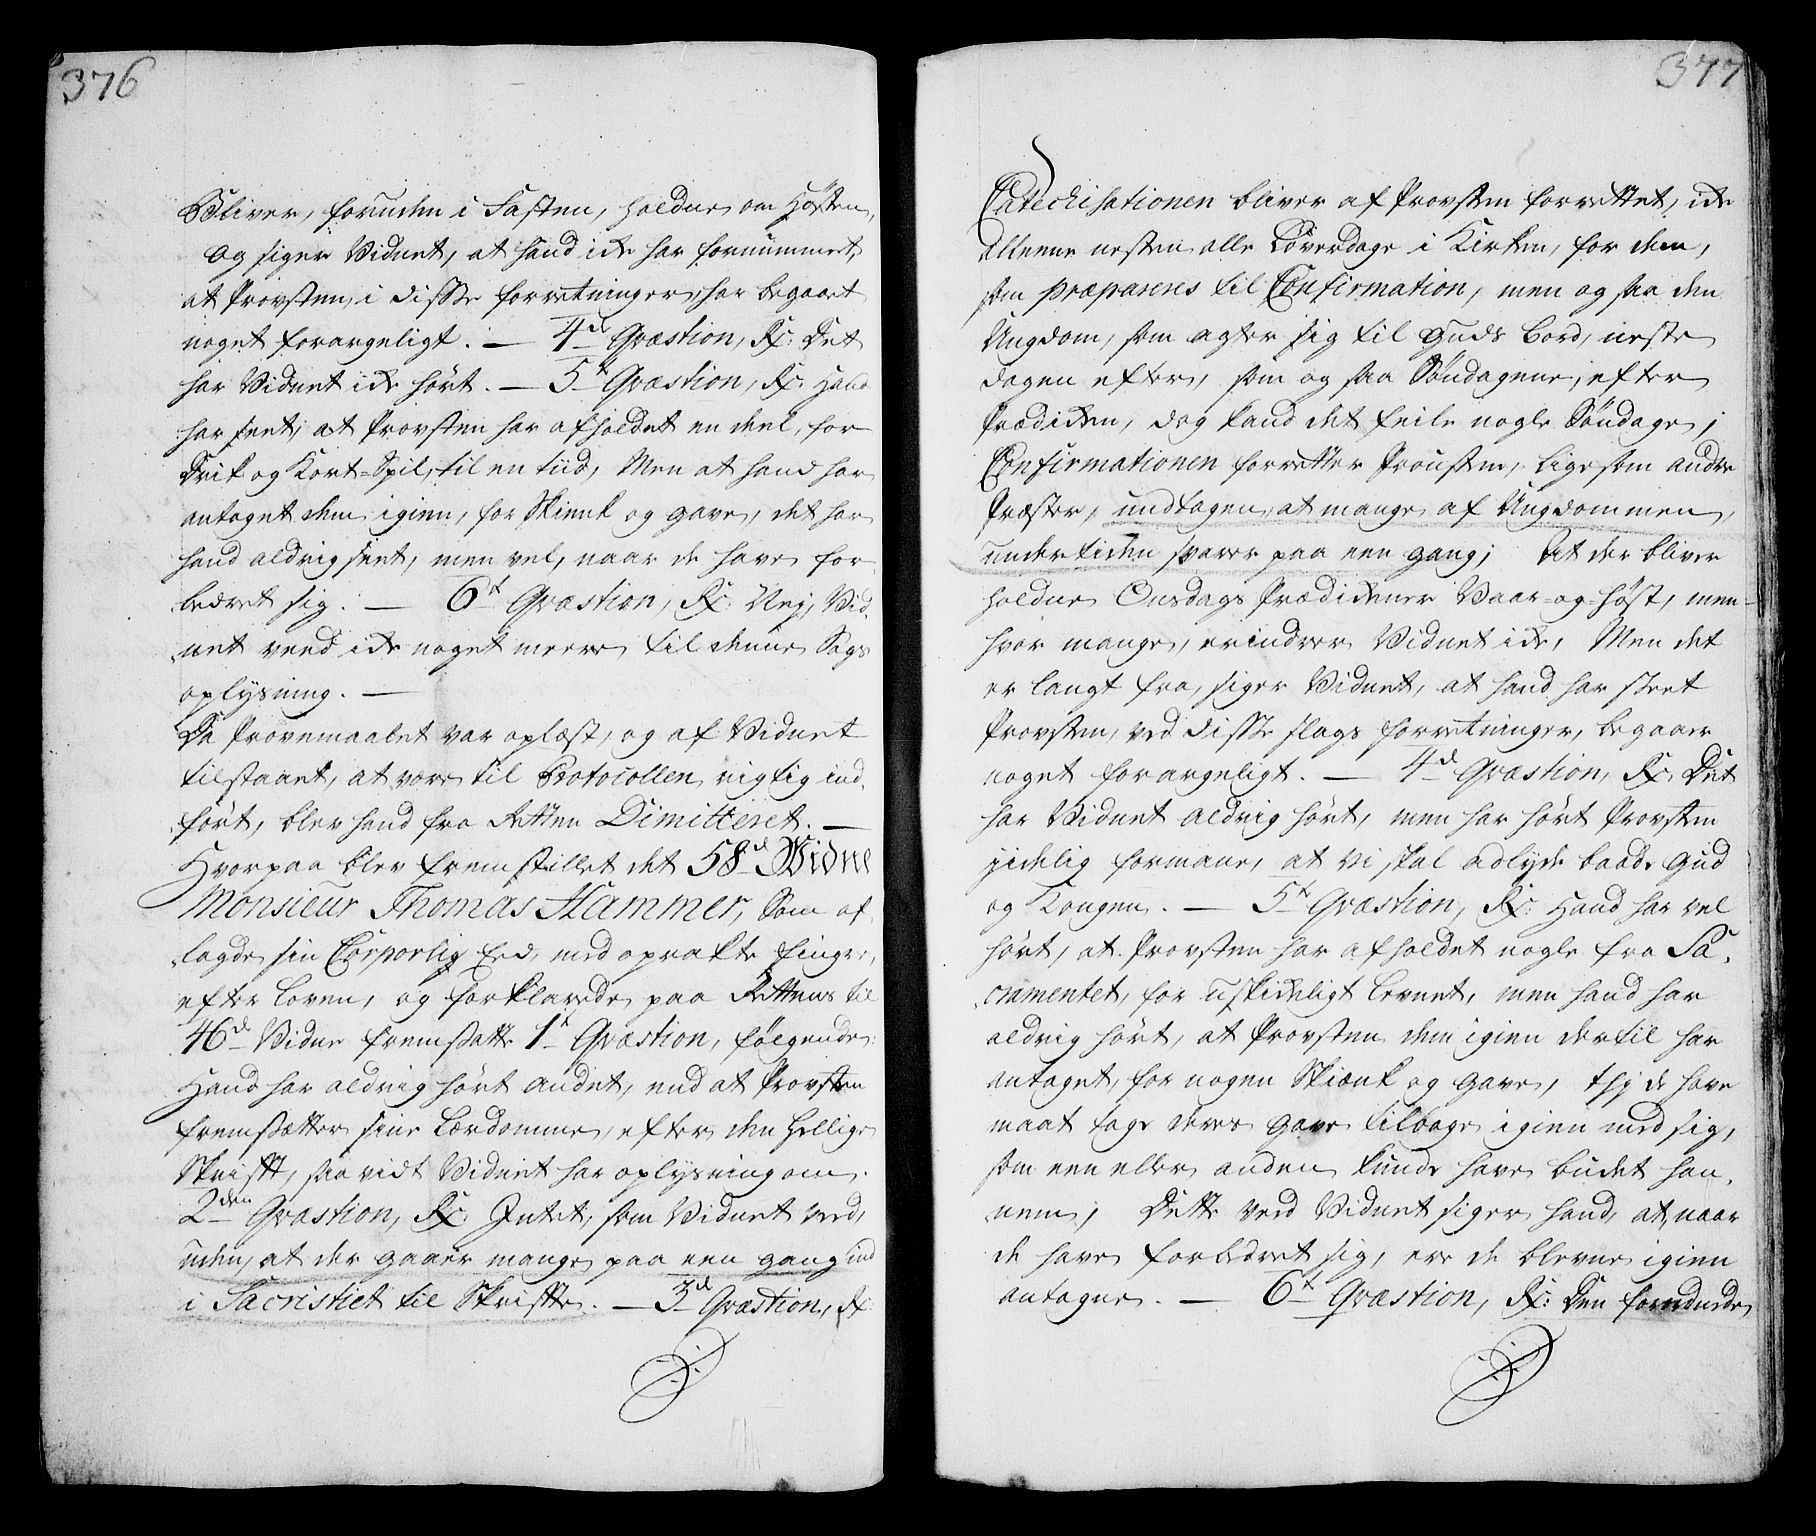 376
Bliver, foruden i Fasten, holdne om Høsten,
og siger Vidnet, at hand icke har fornummet,
at Provsten, i disse forretninger, har begaaet
noget forargeligt. — 4d Qvæstion, Rx: Det
har Vidnet icke hört. — 5t Qvæstion, Rx: Hand
har seet, at Provsten har afholdet en deel, for
Drik og Kort-Spil, til en tiid, Men at hand har
antaget dem igien, for Skienk og gave, det har
hand aldrig seet, men vel, naar de have for-
bedret sig. — 6t Qvæstion, Rx: Nej, Vid-
net veed icke noget meere til denne Sags
oplysning. —
Da Provemaalet var oplæst, og af Vidnet
tilstaaet, at være til Protocollen rigtig ind-
fört, blev hand fra Retten Dimitteret. —
Hvorpaa blev fremstillet det 58d Vidne
Monsieur Thomas Hammer, Som af-
lagde sin Corporlig Eed, med oprakte finger,
efter Loven, og forklarede paa Rettens til
46d Vidne fremsatte 1t Qvæstion, følgende:
Hand har aldrig hört andet, end at Provsten
fremsætter sine Lærdomme, efter den Hellige
Skrifft, saa vidt Vidnet har oplysning om.
2den Qvæstion, Rx: Intet, som Vidnet veed,
uden, at der gaaer mange paa een gang ind
i Sacristiet til Skriffte. — 3d Qvæstion, Rx:
377
Catechisationen bliver af Provsten forrettet, icke
alleene nesten alle Löverdage i Kirken, for dem,
som præpareres til Confirmation, men og saa den
Ungdom, som agter sig til Guds bord, neste
dagen efter, som og saa Søndagene, efter
Prædicken, dog kand det feile nogle Søndage;
Confirmationen forretter Provsten, ligesom andre
Præster, undtagen, at mange af Ungdommen,
undertiden svarer paa een gang; At der bliver
holdne Onsdags Prædickener Vaar-og-Høst, men
hvor mange, erindrer Vidnet icke, Men det
er langt fra, siger Vidnet, at hand har seet
Provsten, ved disse slags forretninger, begaaer
noget forargeligt. — 4d Qvæstion, Rx: Det
har Vidnet aldrig hört, men har hört Provsten
jidelig formane, at vi skal adlyde baade Gud
og Kongen. — 5t Qvæstion, Rx: Hand har vel
hört, at Provsten har afholdet nogle fra Sa-
cramentet, for uskickeligt Levnet, men hand har
aldrig hört, at Provsten dem igien dertil har
antaget, for nogen Skiænk og Gave, thj de have
maat tage deres Gave tilbage igien med sig,
som een eller anden kunde have budet han-
nem; Dette veed Vidnet siger hand, at, naar
de have forbedret sig, ere de blevne igien
antagne. — 6t Qvæstion, Rx: Den